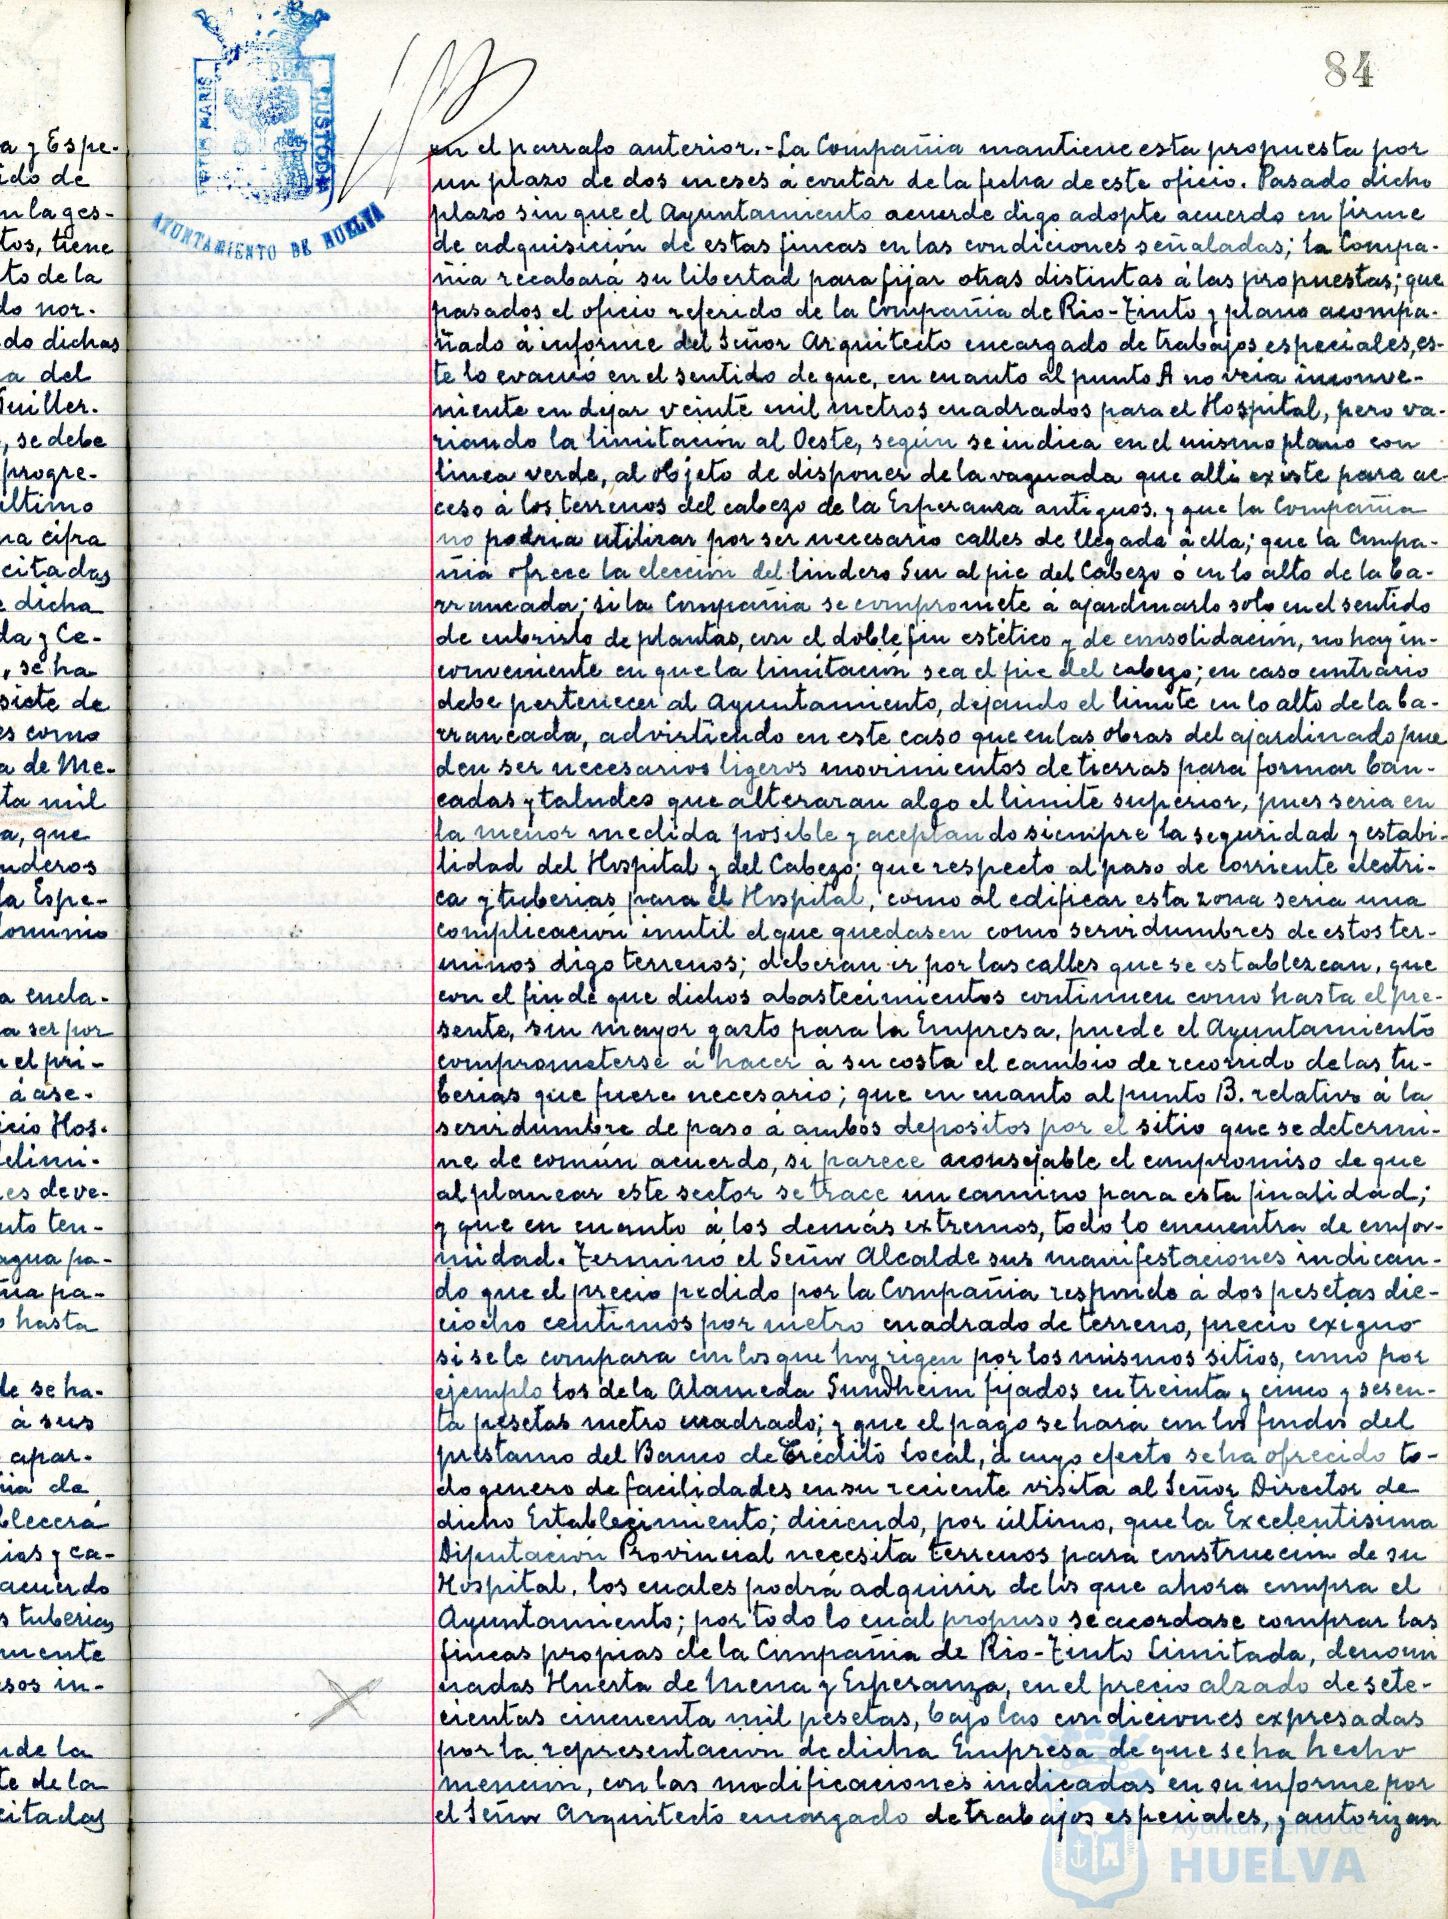 84
PORTUS MARIS
CUSTODIA
AYUNTAMIENTO DE HUELVA
en el parrafo anterior.-La Compañia mantiene esta propuesta por
un plazo de dos meses á contar de la fecha de este oficio. Pasado dicho
plazo sin que el Ayuntamiento acuerde digo adopte acuerdo en firme
de adquisición de estas fincas en las condiciones señaladas; la Compa-
ñia recabará su libertad para fijar otras distintas á las propuestas; que
pasados el oficio referido de la Compañia de Rio-Tinto y plano acompa-
ñado á informe del Señor Arquitecto encargado de trabajos especiales, es-
te lo evacuó en el sentido de que, en cuanto al punto A no veia inconve-
niente en dejar veinte mil metros cuadrados para el Hospital, pero va-
riando la limitación al Oeste, según se indica en el mismo plano con
linea verde, al objeto de disponer de la vaguada que alli existe para ac-
ceso á los terrenos del cabezo de la Esperanza antiguos, y que la Compañia
no podria utilizar por ser necesario calles de llegada á ella; que la Compa-
ñia ofrece la elección del lindero Sur al pie del Cabezo ó en lo alto de la ba-
rrancada; si la Compañia se compromete á ajardinarlo solo en el sentido
de cubrirlo de plantas, con el doble fin estético y de consolidación, no hay in-
conveniente en que la limitación sea el pie del cabezo; en caso contrario
debe pertenecer al Ayuntamiento, dejando el limite en lo alto de la ba-
rrancada, advirtiendo en este caso que en las obras del ajardinado pue
den ser necesarios ligeros movimientos de tierras para formar ban-
cadas y taludes que alteraran algo el limite superior, pues seria en
la menor medida posible y aceptando siempre la seguridad y estabi-
lidad del Hospital y del Cabezo; que respecto al paso de corriente electri-
ca y tuberias para el Hospital, como al edificar esta zona seria una
complicación inutil el que quedasen como servidumbres de estos ter-
minos digo terrenos; deberan ir por las calles que se establezcan, que
con el fin de que dichos abastecimientos continuen como hasta el pre-
sente, sin mayor gasto para la Empresa, puede el Ayuntamiento
comprometerse á hacer á su costa el cambio de recorrido de las tu-
berias que fuere necesario; que en cuanto al punto B. relativo á la
servidumbre de paso á ambos depositos por el sitio que se determi-
ne de común acuerdo, si parece aconsejable el compromiso de que
al planear este sector se trace un camino para esta finalidad;
y que en cuanto á los demás extremos, todo lo encuentra de confor-
midad. Terminó el Señor Alcalde sus manifestaciones indican-
do que el precio pedido por la Compañia responde á dos pesetas die-
ciocho centimos por metro cuadrado de terreno, precio exiguo
si se le compara con los que hoy rigen por los mismos sitios, como por
ejemplo los de la Alameda Sundheim fijados en treinta y cinco y sesen-
ta pesetas metro cuadrado; y que el pago se hará con los fondos del
préstamo del Banco de Crédito Local, á cuyo efecto se ha ofrecido to-
do genero de facilidades en su reciente visita al Señor Director de
dicho Establecimiento; diciendo, por último, que la Excelentisima
Diputación Provincial necesita terrenos para construcción de su
Hospital, los cuales podrá adquirir de los que ahora compra el
Ayuntamiento; por todo lo cual propuso se acordase comprar las
fincas propias de la Compañia de Rio-Tinto Limitada, denomi
nadas Huerta de Mena y Esperanza, en el precio alzado de sete-
cientas cincuenta mil pesetas, bajo las condiciones expresadas
por la representación de dicha Empresa de que se ha hecho
mención, con las modificaciones indicadas en su informe por
el Señor Arquitecto encargado de trabajos especiales, y autorizan
Ayuntamiento de
HUELVA